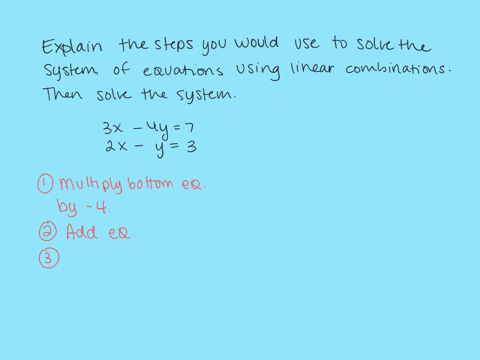 Explain the steps you would use to solve the
system of equations using linear combinations.
Then solve the system.
3x - 4y = 7
2x - y = 3
① Multiply bottom eq.
by -4.
② Add eq.
③